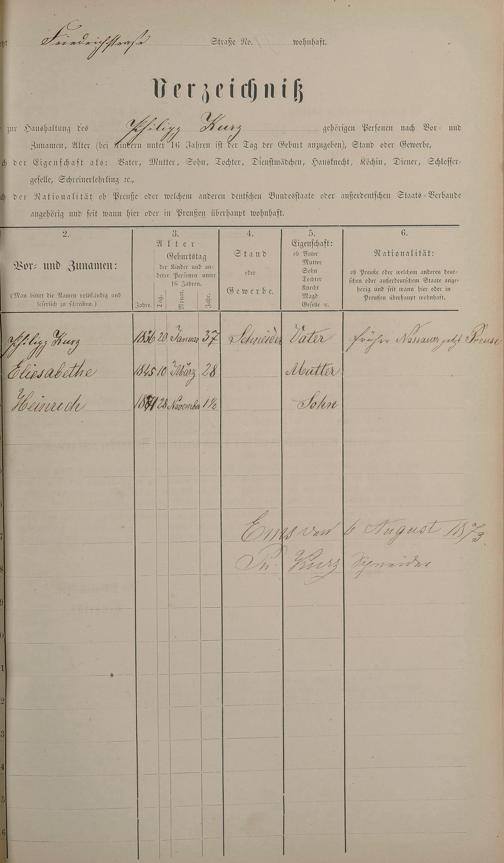 Friedrichstrasse Straße No. wohnhaft.
Verzeichniß
zur Haushaltung des Philipp Kurz gehörigen Personen nach Vor- und
Zunamen, Alter (bei Kindern unter 16 Jahren ist der Tag der Geburt anzugeben), Stand oder Gewerbe,
der Eigenschaft als: Vater, Mutter, Sohn, Tochter, Dienstmädchen, Hausknecht, Köchin, Diener, Schlosser-
geselle, Schreinerlehrling ꝛc.,
der Nationalität ob Preuße oder welchem anderen deutschen Bundesstaate oder außerdeutschen Staats-Verbande
angehörig und seit wann hier oder in Preußen überhaupt wohnhaft.
2. 3. 4. 5. 6.
Vor- und Zunamen:
(Man bittet die Namen vollständig und leserlich zu schreiben.)
Alter
Geburtstag
der Kinder und anderer Personen unter 16 Jahren.
Jahre. Tag. Monat. Jahr.
Stand
oder
Gewerbe.
Eigenschaft:
ob Vater
Mutter
Sohn
Tochter
Knecht
Magd
Geselle
ꝛc.
Nationalität:
ob Preuße oder welchem anderen deutschen oder außerdeutschen Staate angehörig und seit wann hier oder in Preußen überhaupt wohnhaft.
Philipp Kurz 1836 20 Januar 37 Schneider Vater früher Nassauer jetzt Preuse
Eliesabethe 1845 10 März 28 Mutter
Heinrich 1871 28 November 1½ Sohn
Ems den 6 August 1873
Ph. Kurz Schneider